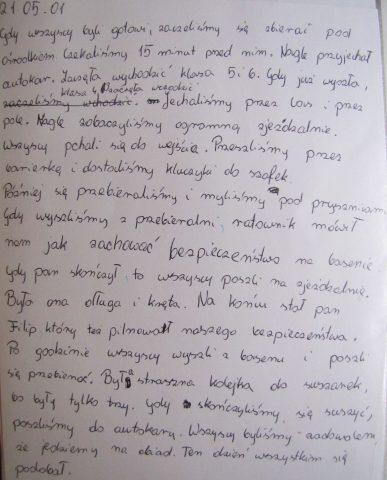 21.05.01
Gdy wszyscy byli gotowi, zaczeliśmy się zbierać pod
ośrodkiem. Czekaliśmy 15 minut przed nim. Nagle przyjechał
autokar. Zaczęła wychodzić klasa 5 i 6. Gdy już wyszła,
klasa 4 zaczęła wchodzić.
zaczeliśmy wchodzić. Jechaliśmy przez las i przez
pole. Nagle zobaczyliśmy ogromną zjeżdżalnie.
Wszyscy pchali się do wejścia. Przeszliśmy przez
barierkę i dostaliśmy kluczyki do szafek.
Później się przebieraliśmy i myliśmy pod prysznicami.
Gdy wyszliśmy z przebieralni, ratownik mówił
nam jak zachować bezpieczeństwo na basenie
Gdy pan skończył, to wszyscy poszli na zjeżdżalnie.
Była ona długa i kręta. Na końcu stał pan
Filip, który też pilnował naszego bezpieczeństwa.
Po godzinie wszyscy wyszli z basenu i poszli
się przebierać. Była straszna kolejka do suszarek,
bo były tylko trzy. Gdy skończyliśmy się suszyć,
poszliśmy do autokaru. Wszyscy byliśmy zadowoleni,
że jedziemy na obiad. Ten dzień wszystkim się
podobał.